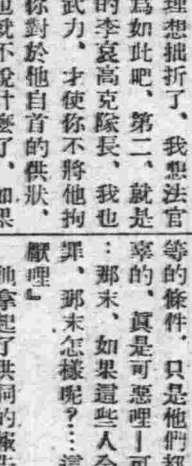 理想拙折了、我想法官
爲如此吧、第二、就是
的李哀高克隊長、我也
武力、才使你不將他拘
你對於他自首的供狀、
也就不說什麼了、如果
等的條件、只是他們
辜的、眞是可惡哩—可
⋮那末、如果這些人
罪、那末怎樣呢?⋯這
厭哩』
他拿起了供詞的